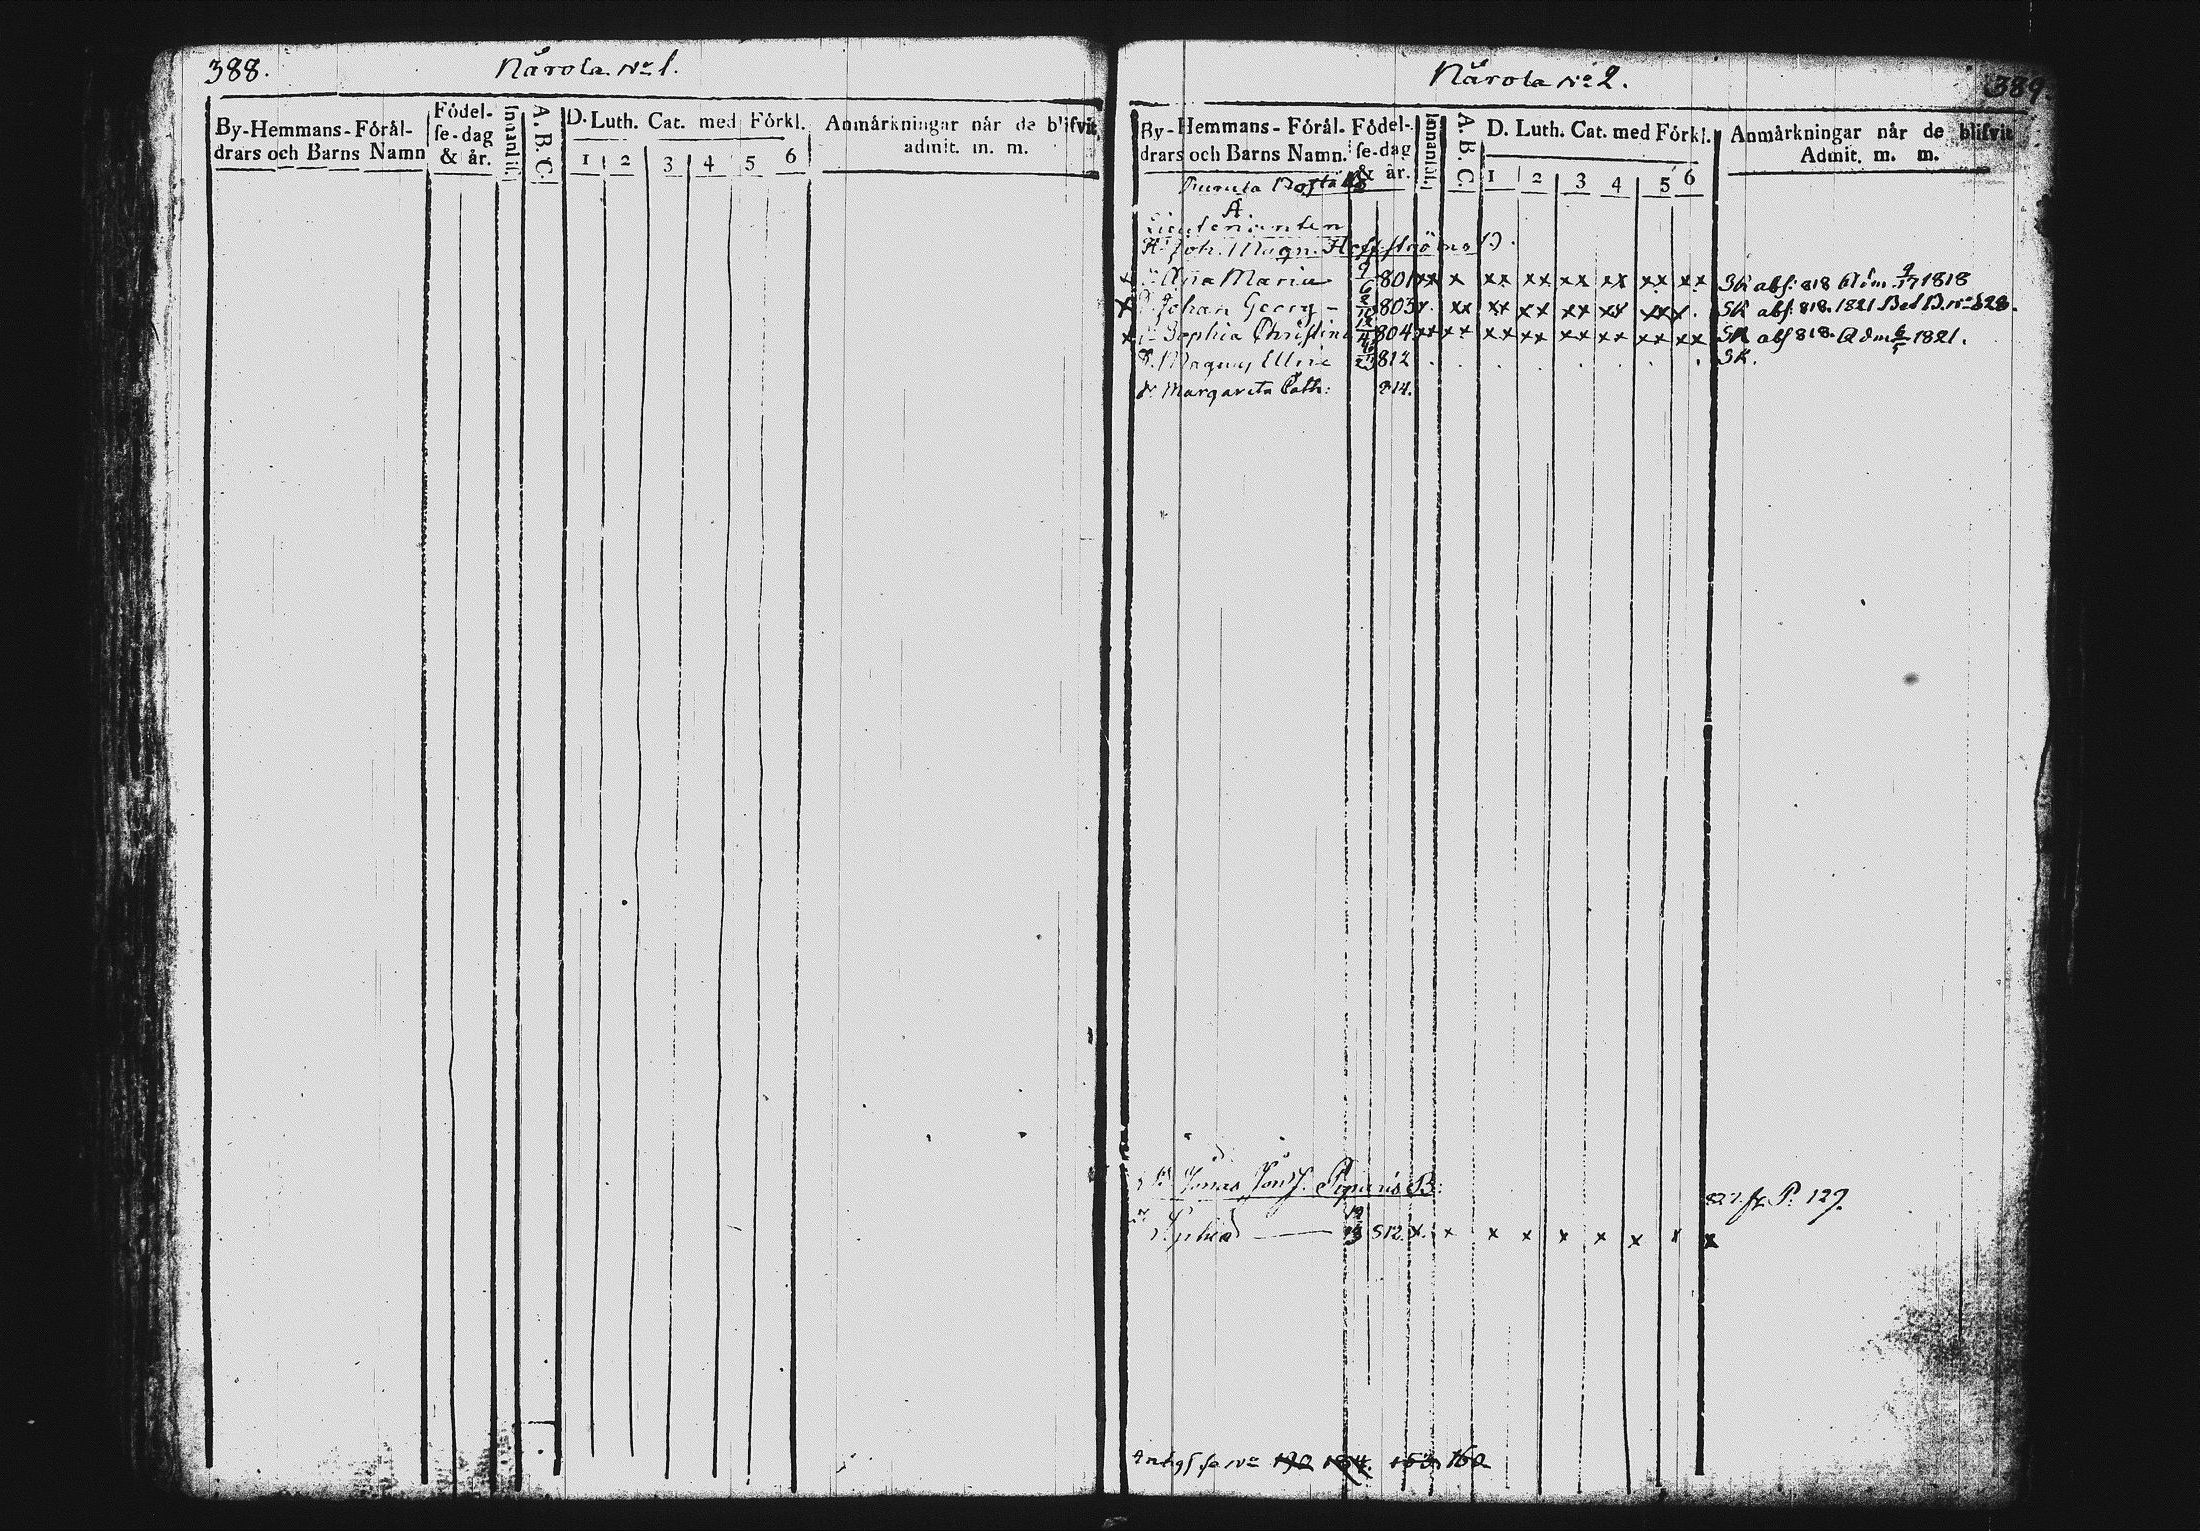 388.
Närola No 1.
By-Hemmans-Förål-
drars och Barns Namn
Födel-
se-dag
& år.
Innanlit.
A. B. C.
D. Luth. Cat. med Förkl.
1 2 3 4 5 6
Anmärkningar når de blifvit
admit. m. m.
Närola No 2.
389.
By-Hemmans-Förål-
drars och Barns Namn.
Födel-
se-dag
& år.
Innanlit.
A. B. C.
D. Luth. Cat. med Förkl.
1 2 3 4 5 6
Anmärkningar når de blifvit
Admit. m. m.
A.
Lieutenanten
Hr Joh. Magn.
Anna Maria 9/6 801 xx x xx xx xx xx xx xx SK abs. 818 1818
Johan Georg - 803 x xx xx xx xx xx xxx SK abs. 818. 1821 Bet B. No 328.
Sophia Christina 804 xx xx xx xx xx xx xx xx SK abs 818. Adm 1821.
Magnus Ulric 812 SK.
dr Margareta Cath: 814.
Jonas B:
827. fr. P. 127.
Sophia 812. x. x x x x x x x x
No 190 184. 153 160